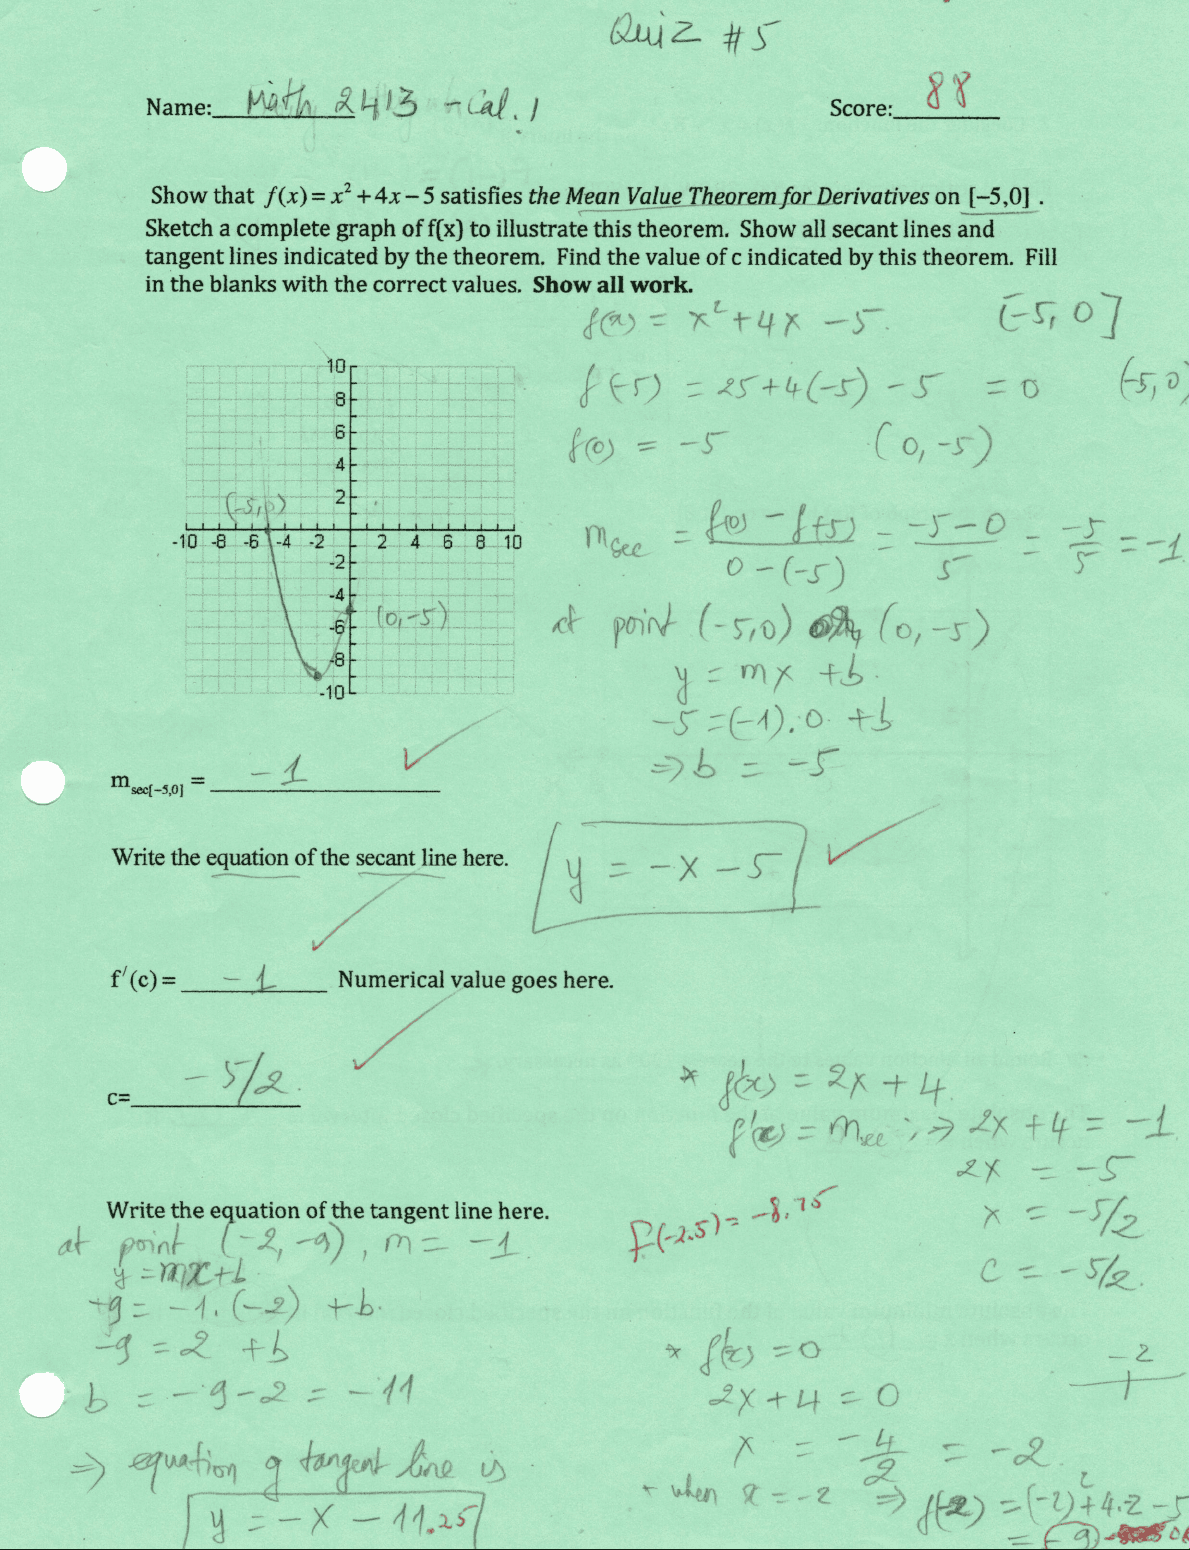 Quiz #5
Name: Math 2413 - Cal. 1 Score: 88
Show that f(x) = x² + 4x – 5 satisfies the Mean Value Theorem for Derivatives on [–5,0] .
Sketch a complete graph of f(x) to illustrate this theorem. Show all secant lines and
tangent lines indicated by the theorem. Find the value of c indicated by this theorem. Fill
in the blanks with the correct values. Show all work.
f(x) = x² + 4x - 5. [-5, 0]
f(-5) = 25 + 4(-5) - 5 = 0 (-5, 0)
f(0) = -5 (0, -5)
10
8
6
4
2
(-5,0)
-10 -8 -6 -4 -2 2 4 6 8 10
-2
-4
-6
-8
-10
(0,-5)
m sec = f(0) - f(-5) / 0 - (-5) = -5 - 0 / 5 = -5/5 = -1
at point (-5,0) (0, -5)
y = mx + b.
-5 = (-1).0 + b
⇒ b = -5
m sec[–5,0] = -1
Write the equation of the secant line here.
y = -x - 5
f′(c) = -1 Numerical value goes here.
c= -5/2.
* f'(x) = 2x + 4.
f'(c) = m sec ; ⇒ 2x + 4 = -1
2x = -5
x = -5/2
c = -5/2.
Write the equation of the tangent line here.
f(-2.5) = -8.75
at point (-2, -9), m = -1
y = mx + b
-9 = -1.(-2) + b.
-9 = 2 + b
b = -9 - 2 = -11
⇒ equation of tangent line is
y = -x - 11.25
* f'(x) = 0
2x + 4 = 0
x = -4/2 = -2.
-2
+ when x = -2 ⇒ f(-2) = (-2)² + 4.-2 - 5
= -9